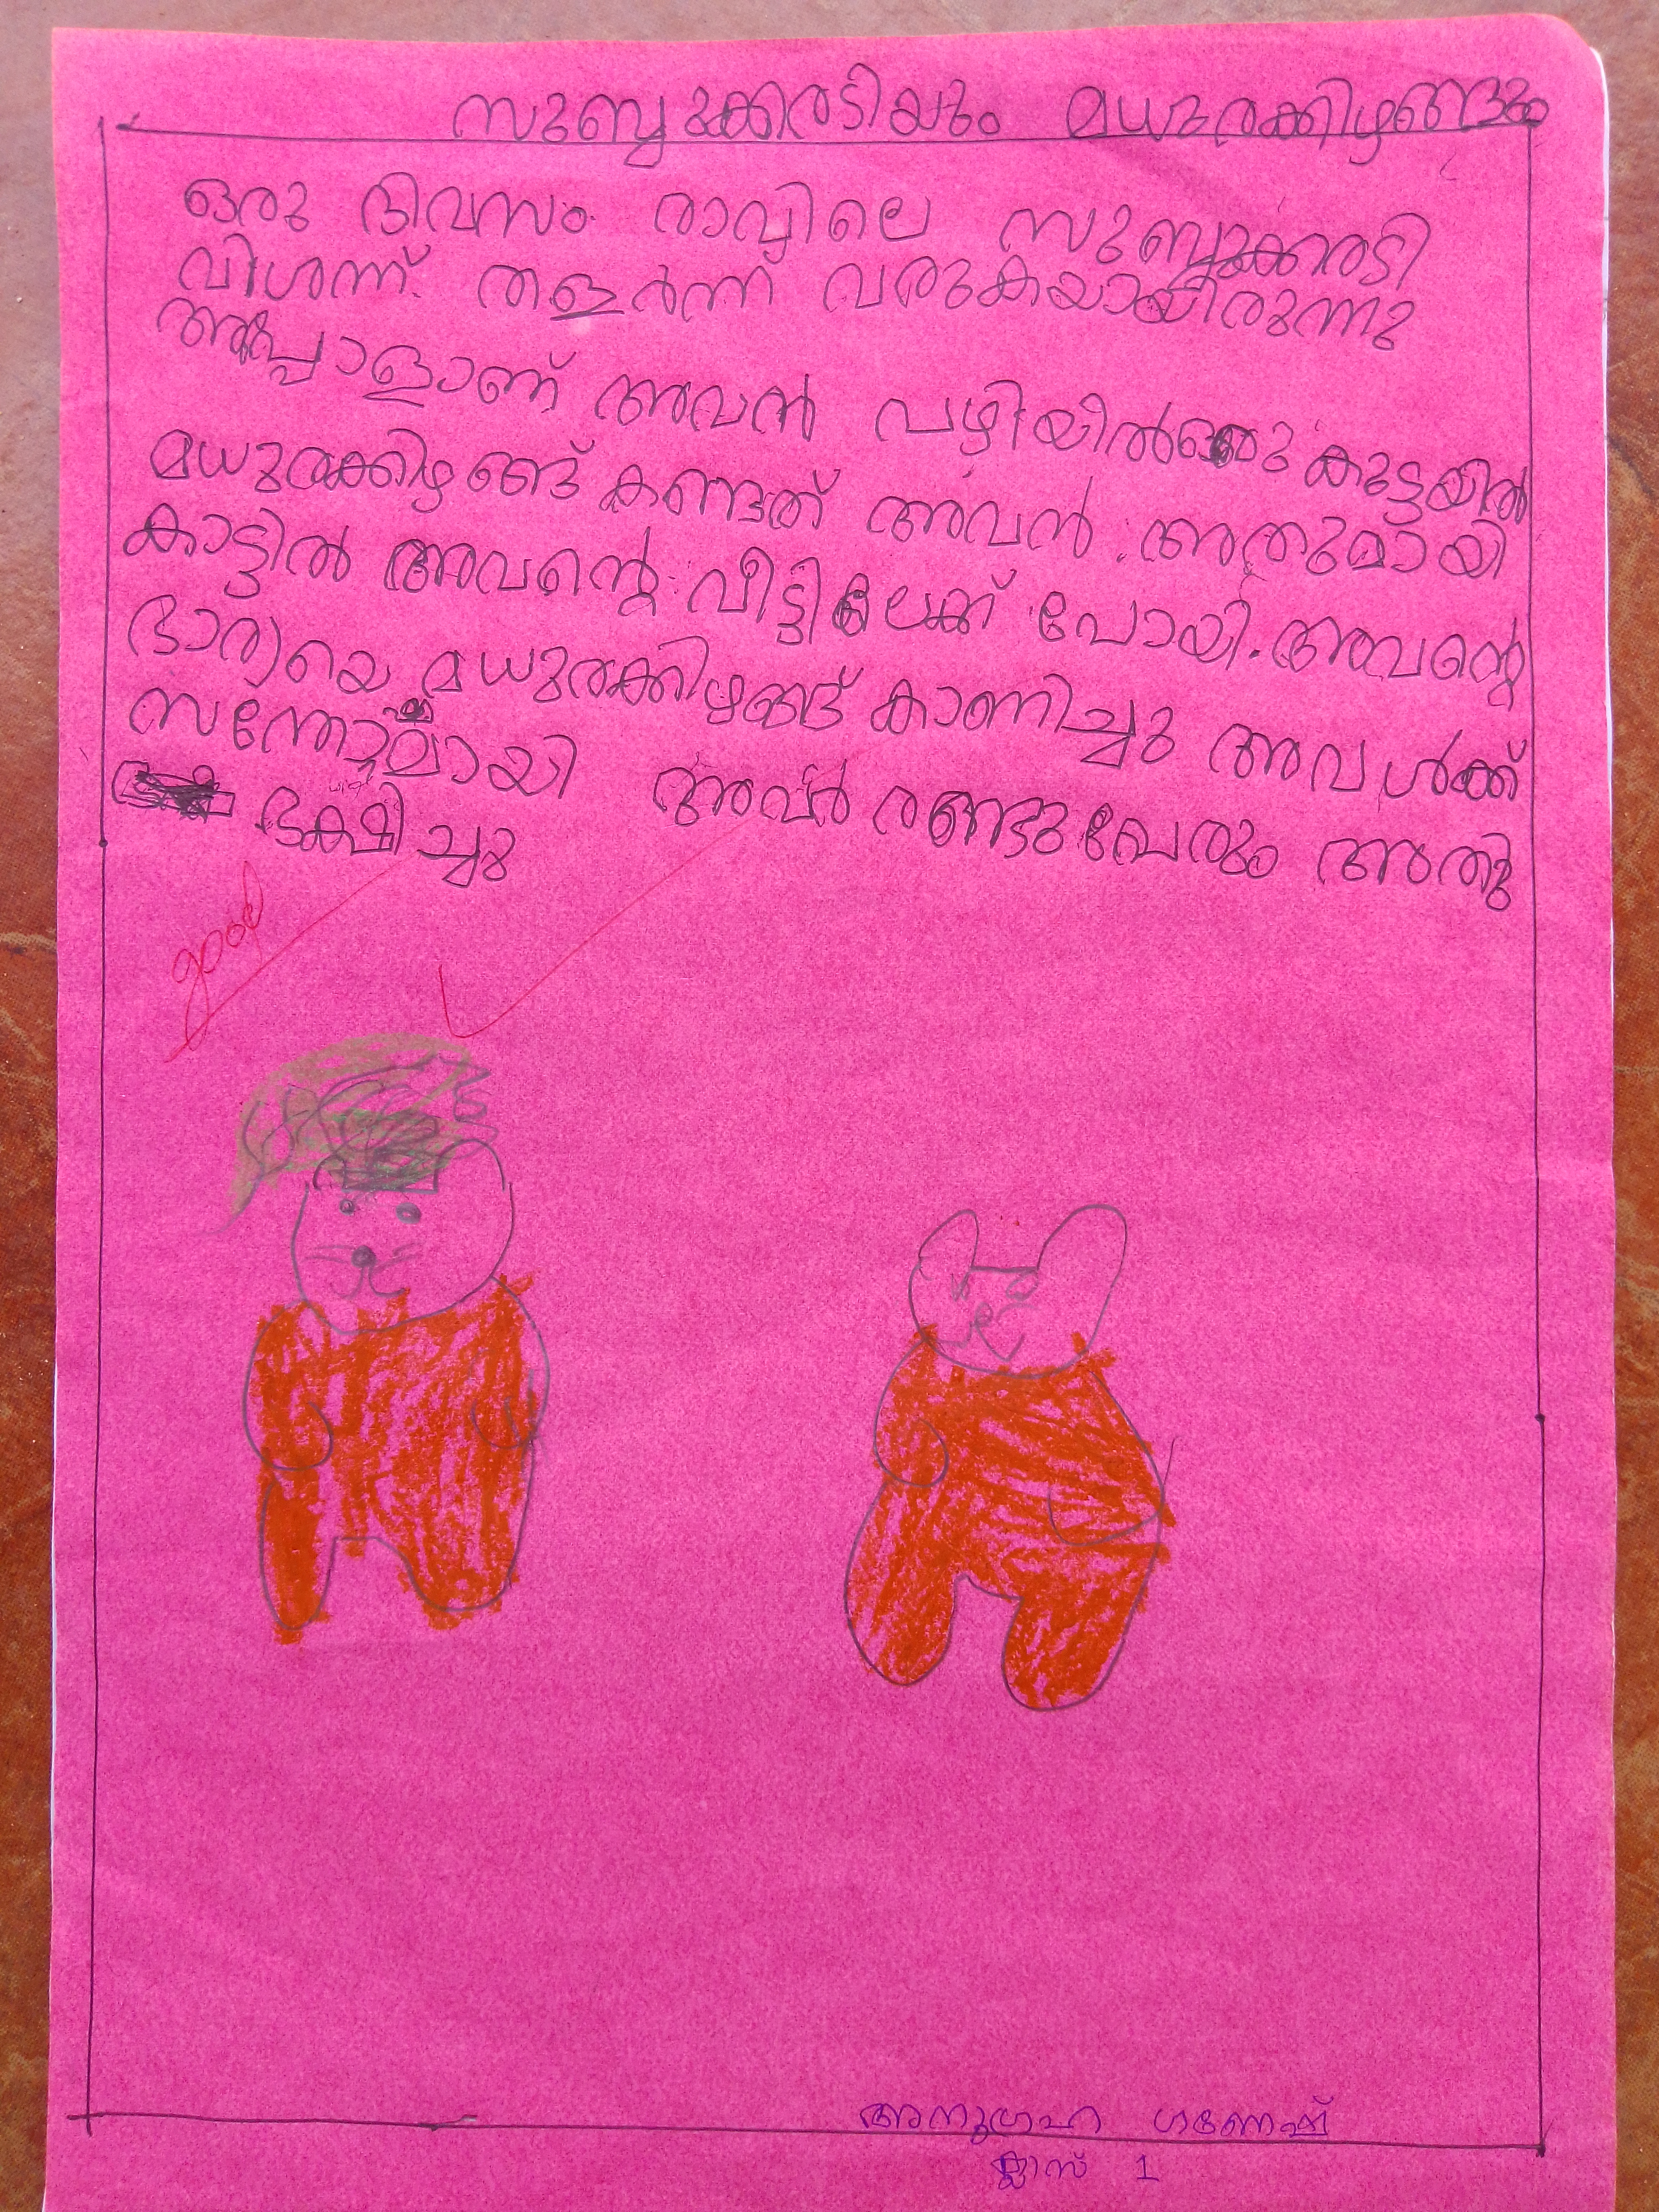 സുബ്ബുക്കരടിയും മധുരക്കിഴങ്ങും
ഒരു ദിവസം രാവിലെ സുബ്ബുക്കരടി
വിശന്ന് തളർന്ന് വരുകയായിരുന്നു
അപ്പോളാണ് അവൻ വഴിയിൽ ഒരു കുട്ടയിൽ
മധുരക്കിഴങ്ങ് കണ്ടത് അവൻ അതുമായി
കാട്ടിൽ അവന്റെ വീട്ടിലേക്ക് പോയി. അവന്റെ
ഭാര്യയെ മധുരക്കിഴങ്ങ് കാണിച്ചു അവൾക്ക്
സന്തോഷമായി അവർ രണ്ടുപേരും അതു
ഭക്ഷിച്ചു
good
അനുഗ്രഹ ഗണേഷ്
ക്ലാസ് 1